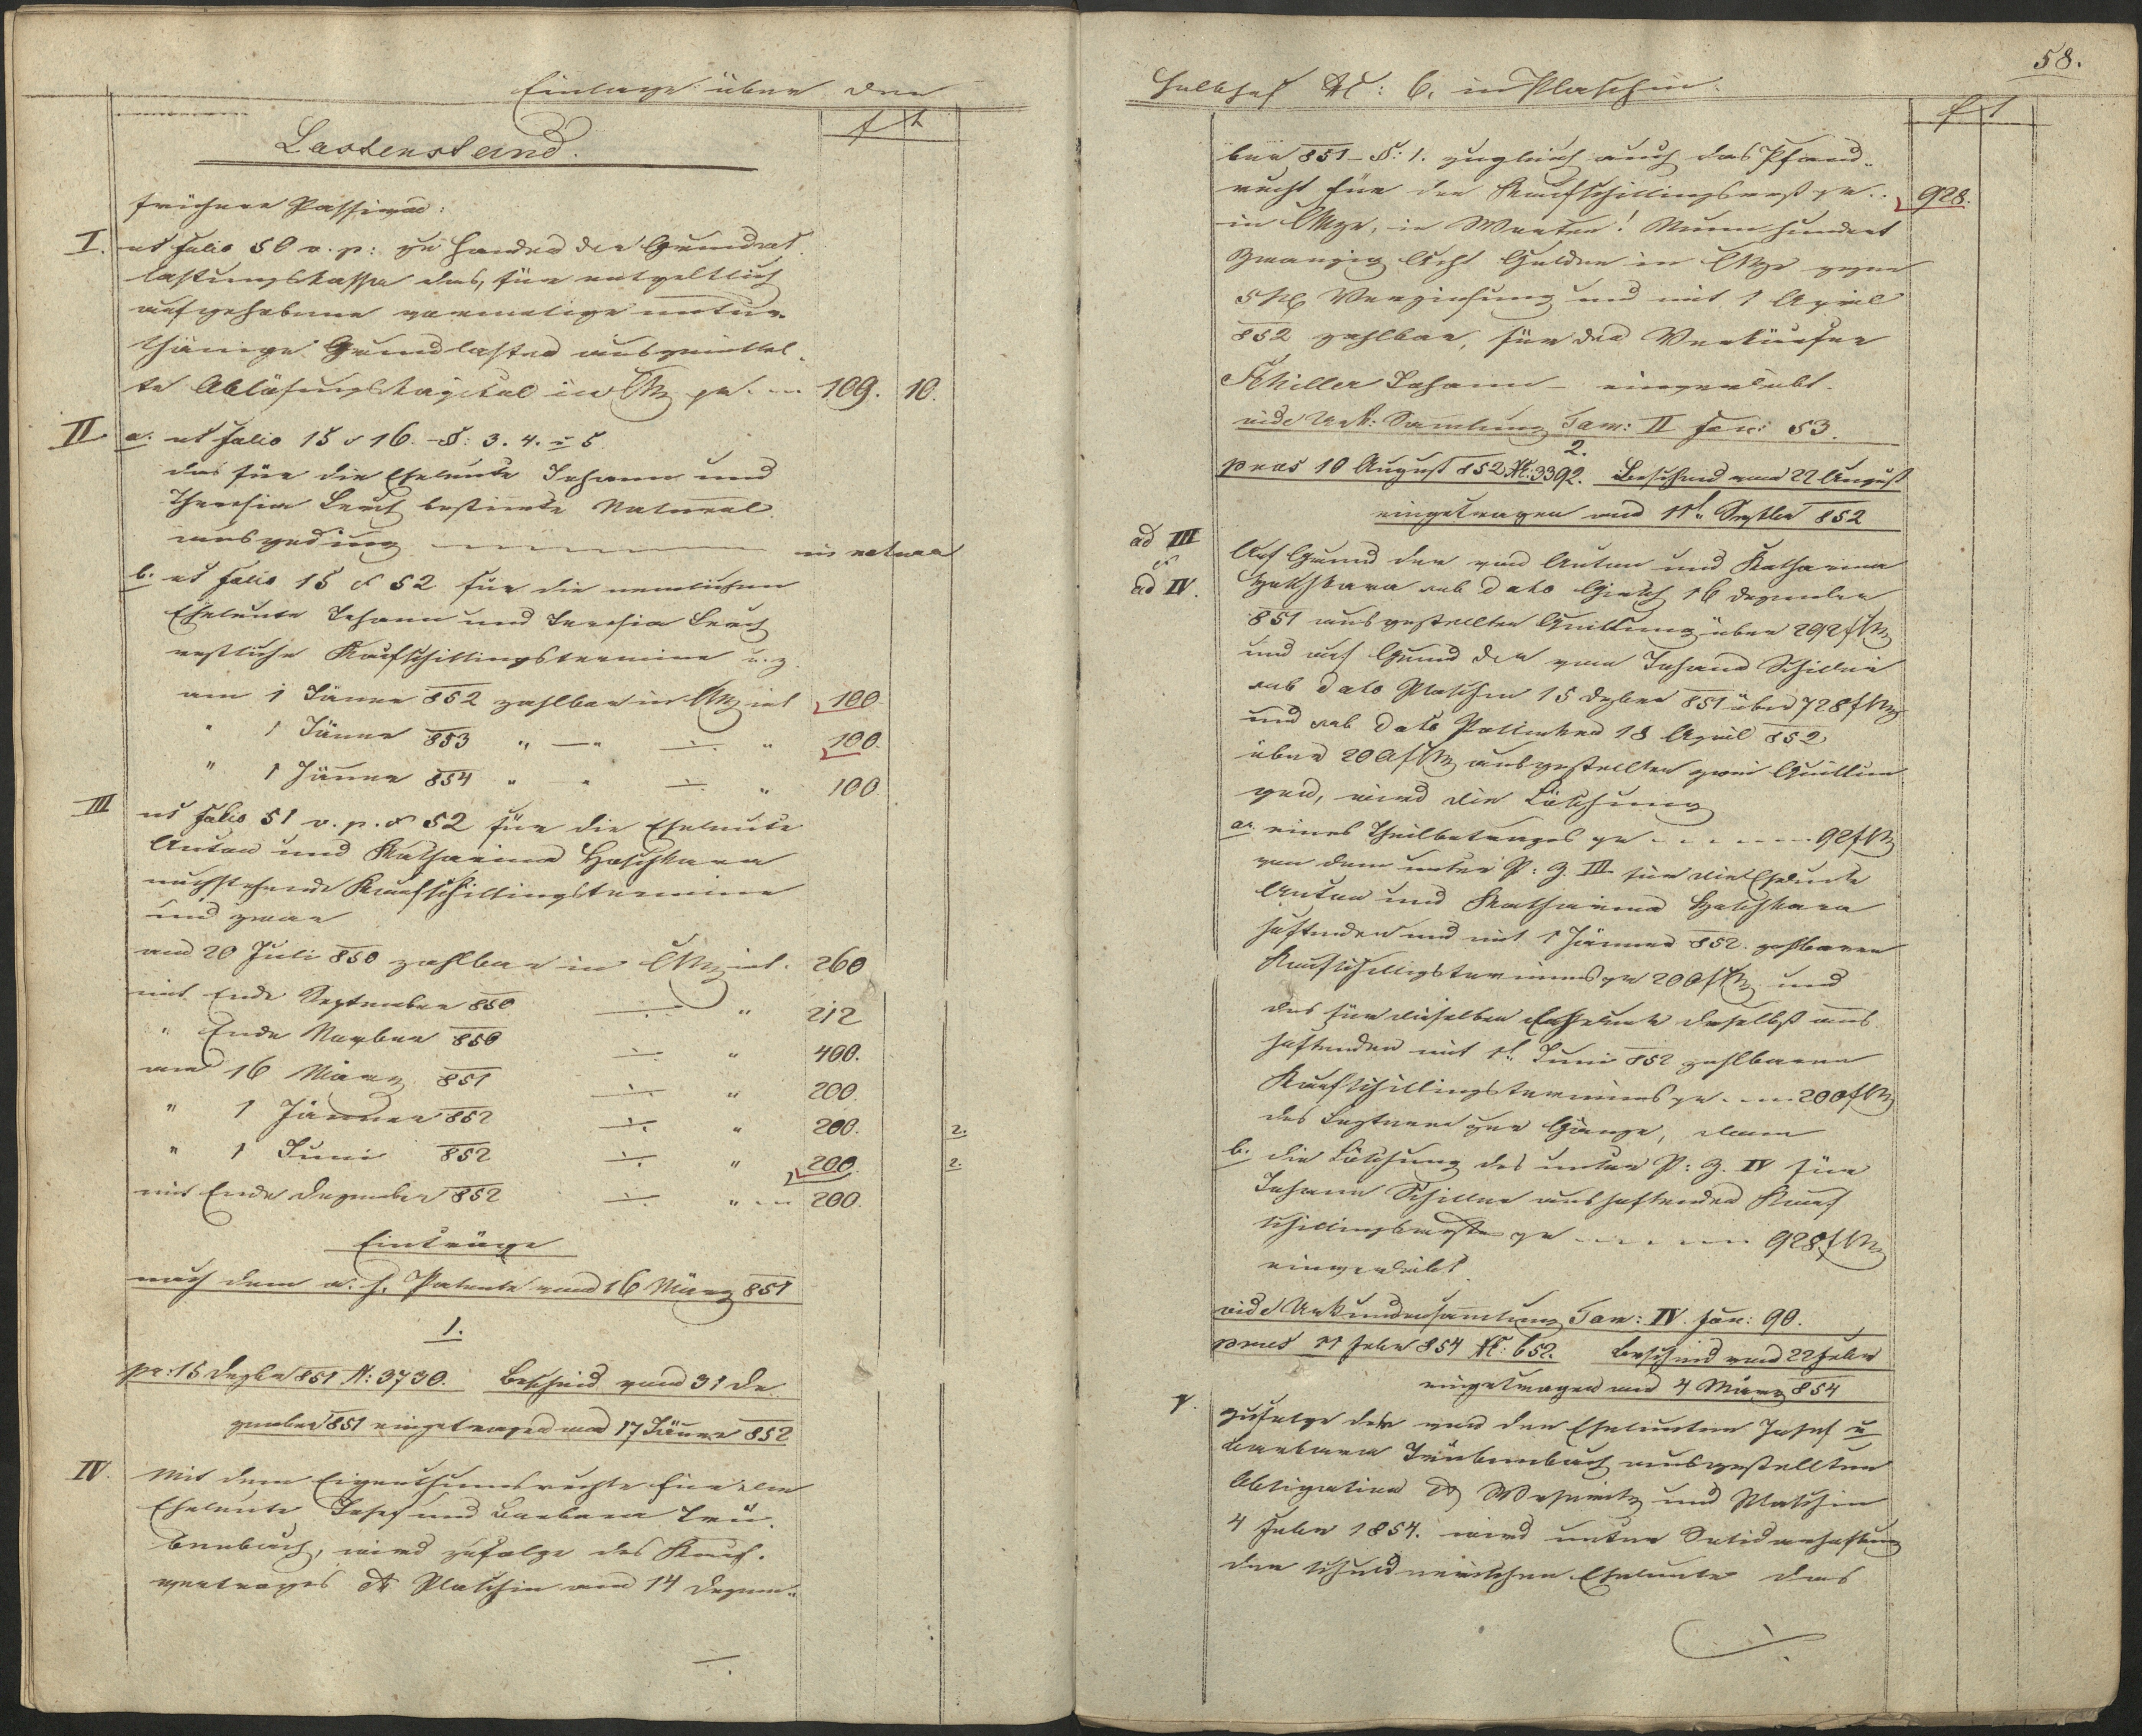 Einlage über den
Lastenstand.
f x
frühere Passiva:
I. ut folio 50 v. p: zu Handen der Grundent-
lastungskassa das, für entgeltlich
aufgehobene vormalige untur-
thänige Grundlasten ausgemittel-
te Ablösungskapital in CMz pr. 109. 10.
II a. ut folio 15 & 16. §: 3. 4. & 5
das für die Eheleute Johann und
Theresia Lerch bestimte Natural
ausgeding in natura
b. ut folio 15 & 52 für die nemlichen
Eheleute Johann und Teresia Lerch
restliche Kaufschillingstermine u. z.
am 1 Jänner 852 zahlbar in CMz mit 100
" 1 Jänner 853 " " " 100.
" 1 Jänner 854 " " " 100
III ut folio 51 v. p. & 52 für die Eheleute
Anton und Katharina
nachstehende Kaufschillingstermine
und zwar
am 20 Juli 850 zahlbar in CMz mit. 260
mit Ende September 850 " 212
" Ende November 850 " 400.
am 16 März 851 " 200.
" 1 Jänner 852 " 200. 2.
" 1 Juni 852 " 200. 2.
mit Ende Dezember 852 " 200.
Einträge
nach dem a. h. Patente vom 16 März 851
1.
pr: 15 Dezbr 851 N: 3730. Bescheid vom 31 De-
zember 851 eingetragen am 17 Jänner 852
IV. Mit dem Eigenthumsrechte für die
Eheleute Josef und Barbara Trü-
benbach, wird zufolge des Kauf-
vertrages Plaschin am 14 Dezem-
58.
Halbhof N: 6. in Plaschin.
f x
ber 851 - §: 1. zugleich auch das Pfand-
recht für den Kaufschillingsrest pr. 928.
in CMze, in Worten! Neun hundert
Zwanzig Acht Gulden in CMze gegen
5 % Verzinsung und mit 1 April
852 zahlbar, für den Verkäufer
Schiller Johann - einverleibt.
vide Urk: Sammlung Tom: II fon: 53.
2.
praes 10 August 852 N: 3392. Bescheid vom 22 August
eingetragen am 11t Septbr 852
ad III
&
ad IV.
Auf Grund der von Anton und Katharina
sub dato 16 Dezember
851 ausgestellten Quittung über 292 f CMz
und auf Grund der vom Johann Schiller
sub dato Plaschin 15 Dezber 851 über 728 f CMz
und sub dato 18 April 852
über 200 f CMz ausgestellten zwei Quittun
gen, wird die Löschung
a. eines Theilbetrages pr 92 f CMz
von dem unter P: Z. III für die Eheleute
Anton und Katharina
haftenden und mit 1 Jänner 852 zahlbaren
Kaufschillingstermines pr 200 f CMz und
des für dieselben Eheleute daselbst aus-
haftenden mit 1t Juni 852 zahlbaren
Kaufschillingstermines pr 200 f CMz
des Letzteren zur Gänze, dann
b. die Löschung des unter P: Z. IV für
Johann Schiller aushaftenden Kauf
schillingsrestes pr 928 f CMz
einverleibt
vide Urkundensamlung Tom: IV. fon: 90.
praes 21 Feber 854 N: 652. Bescheid vom 22 Feber
eingetragen am 4 März 854
V. Zufolge der von den Eheleuten Josef u
Barbara Trübenbach ausgestellten
Obligation und Plaschin
4 Feber 1854. wird unter Solidarhaftung
der schuldnerischen Eheleute das